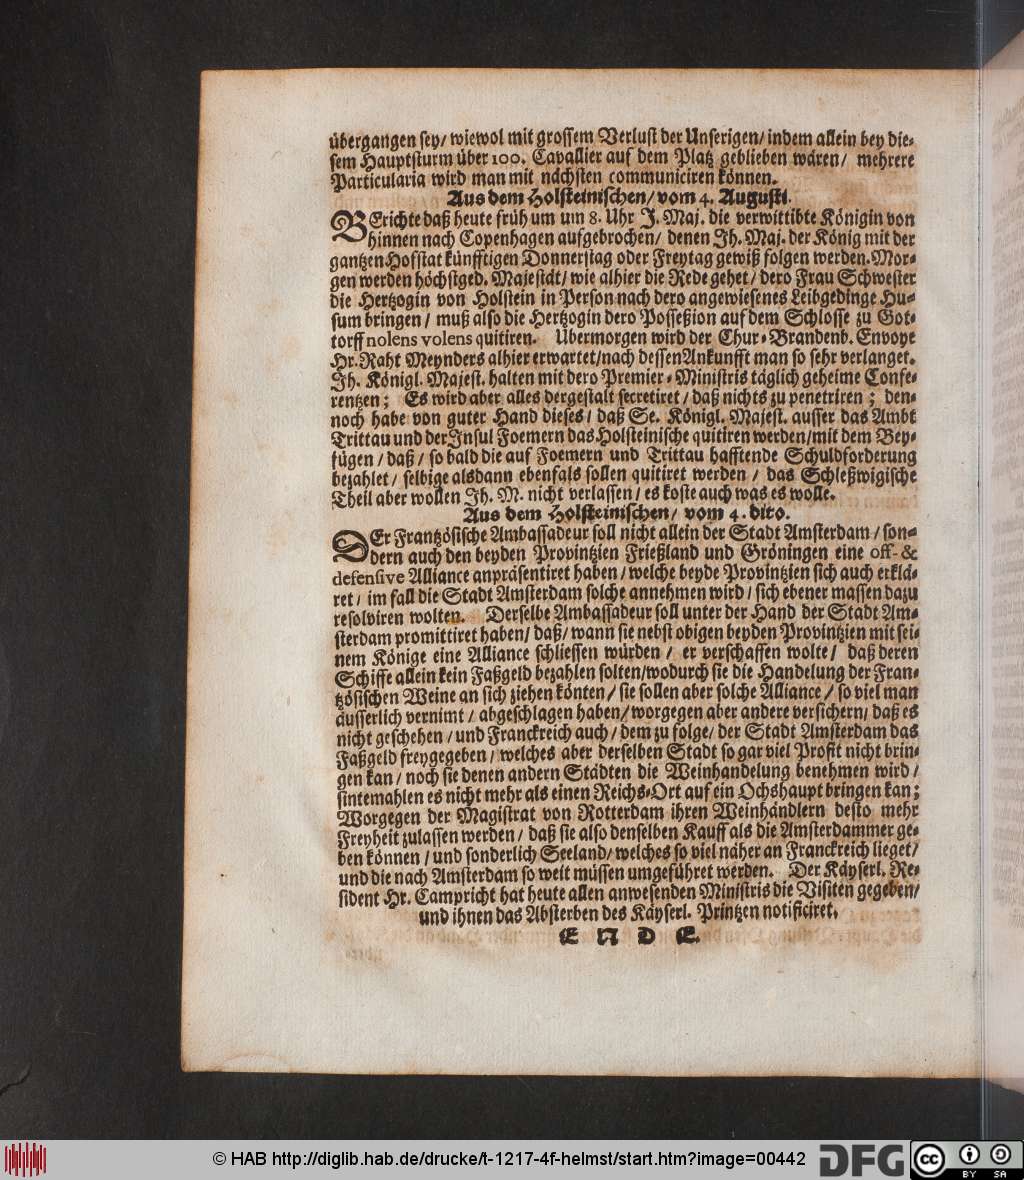 übergangen sey/ wiewol mit grossem Verlust der Unserigen/ indem allein bey die-
sem Hauptsturm über 100. Cavallier auf dem Platz geblieben wären/ mehrere
Particularia wird man mit nächsten communiciren können.
Aus dem Holsteinischen/ vom 4. Augusti.
BErichte daß heute früh um um 8. Uhr J. Maj. die verwittibte Königin von
hinnen nach Copenhagen aufgebrochen/ denen Jh. Maj. der König mit der
gantzen Hofstat künfftigen Donnerstag oder Freytag gewiß folgen werden. Mor-
gen werden höchstged. Majestät/ wie alhier die Rede gehet/ dero Frau Schwester
die Hertzogin von Holstein in Person nach dero angewiesenes Leibgedinge Hu-
sum bringen/ muß also die Hertzogin dero Posseßion auf dem Schlosse zu Got-
torff nolens volens quitiren. Ubermorgen wird der Chur-Brandenb. Envoye
Hr. Raht Meynders alhier erwartet/ nach dessen Ankunfft man so sehr verlanget.
Jh. Königl. Majest. halten mit dero Premier-Ministris täglich geheime Confe-
rentzen; Es wird aber alles dergestalt secretiret/ daß nichts zu penetriren; den-
noch habe von guter Hand dieses/ daß Se. Königl. Majest. ausser das Ambt
Trittau und der Jnsul Foemern das Holsteinische quitiren werden/ mit dem Bey-
fügen/ daß/ so bald die auf Foemern und Trittau hafftende Schuldforderung
bezahlet/ selbige alsdann ebenfals sollen quitiret werden/ das Schleßwigische
Theil aber wollen Jh. M. nicht verlassen/ es koste auch was es wolle.
Aus dem Holsteinischen/ vom 4. dito.
DEr Frantzösische Ambassadeur soll nicht allein der Stadt Amsterdam/ son-
dern auch den beyden Provintzien Frießland und Gröningen eine off- &
defensive Alliance anpräsentiret haben/ welche beyde Provintzien sich auch erklä-
ret/ im fall die Stadt Amsterdam solche annehmen wird/ sich ebener massen dazu
resolviren wolten. Derselbe Ambassadeur soll unter der Hand der Stadt Am-
sterdam promittiret haben/ daß/ wann sie nebst obigen beyden Provintzien mit sei-
nem Könige eine Alliance schliessen würden/ er verschaffen wolte/ daß deren
Schiffe allein kein Faßgeld bezahlen solten/ wodurch sie die Handelung der Fran-
tzösischen Weine an sich ziehen könten/ sie sollen aber solche Alliance/ so viel man
äusserlich vernimt/ abgeschlagen haben/ worgegen aber andere versichern/ daß es
nicht geschehen/ und Franckreich auch/ dem zu folge/ der Stadt Amsterdam das
Faßgeld freygegeben/ welches aber derselben Stadt so gar viel Profit nicht brin-
gen kan/ noch sie denen andern Städten die Weinhandelung benehmen wird/
sintemahlen es nicht mehr als einen Reichs-Ort auf ein Ochshaupt bringen kan;
Worgegen der Magistrat von Rotterdam ihren Weinhändlern desto mehr
Freyheit zulassen werden/ daß sie also denselben Kauff als die Amsterdammer ge-
ben können/ und sonderlich Seeland/ welches so viel näher an Franckreich lieget/
und die nach Amsterdam so weit müssen umgeführet werden. Der Käyserl. Re-
sident Hr. Campricht hat heute allen anwesenden Ministris die Visiten gegeben/
und ihnen das Absterben des Käyserl. Printzen notificiret.
E N D E.
© HAB http://diglib.hab.de/drucke/t-1217-4f-helmst/start.htm?image=00442
DFG
cc BY SA